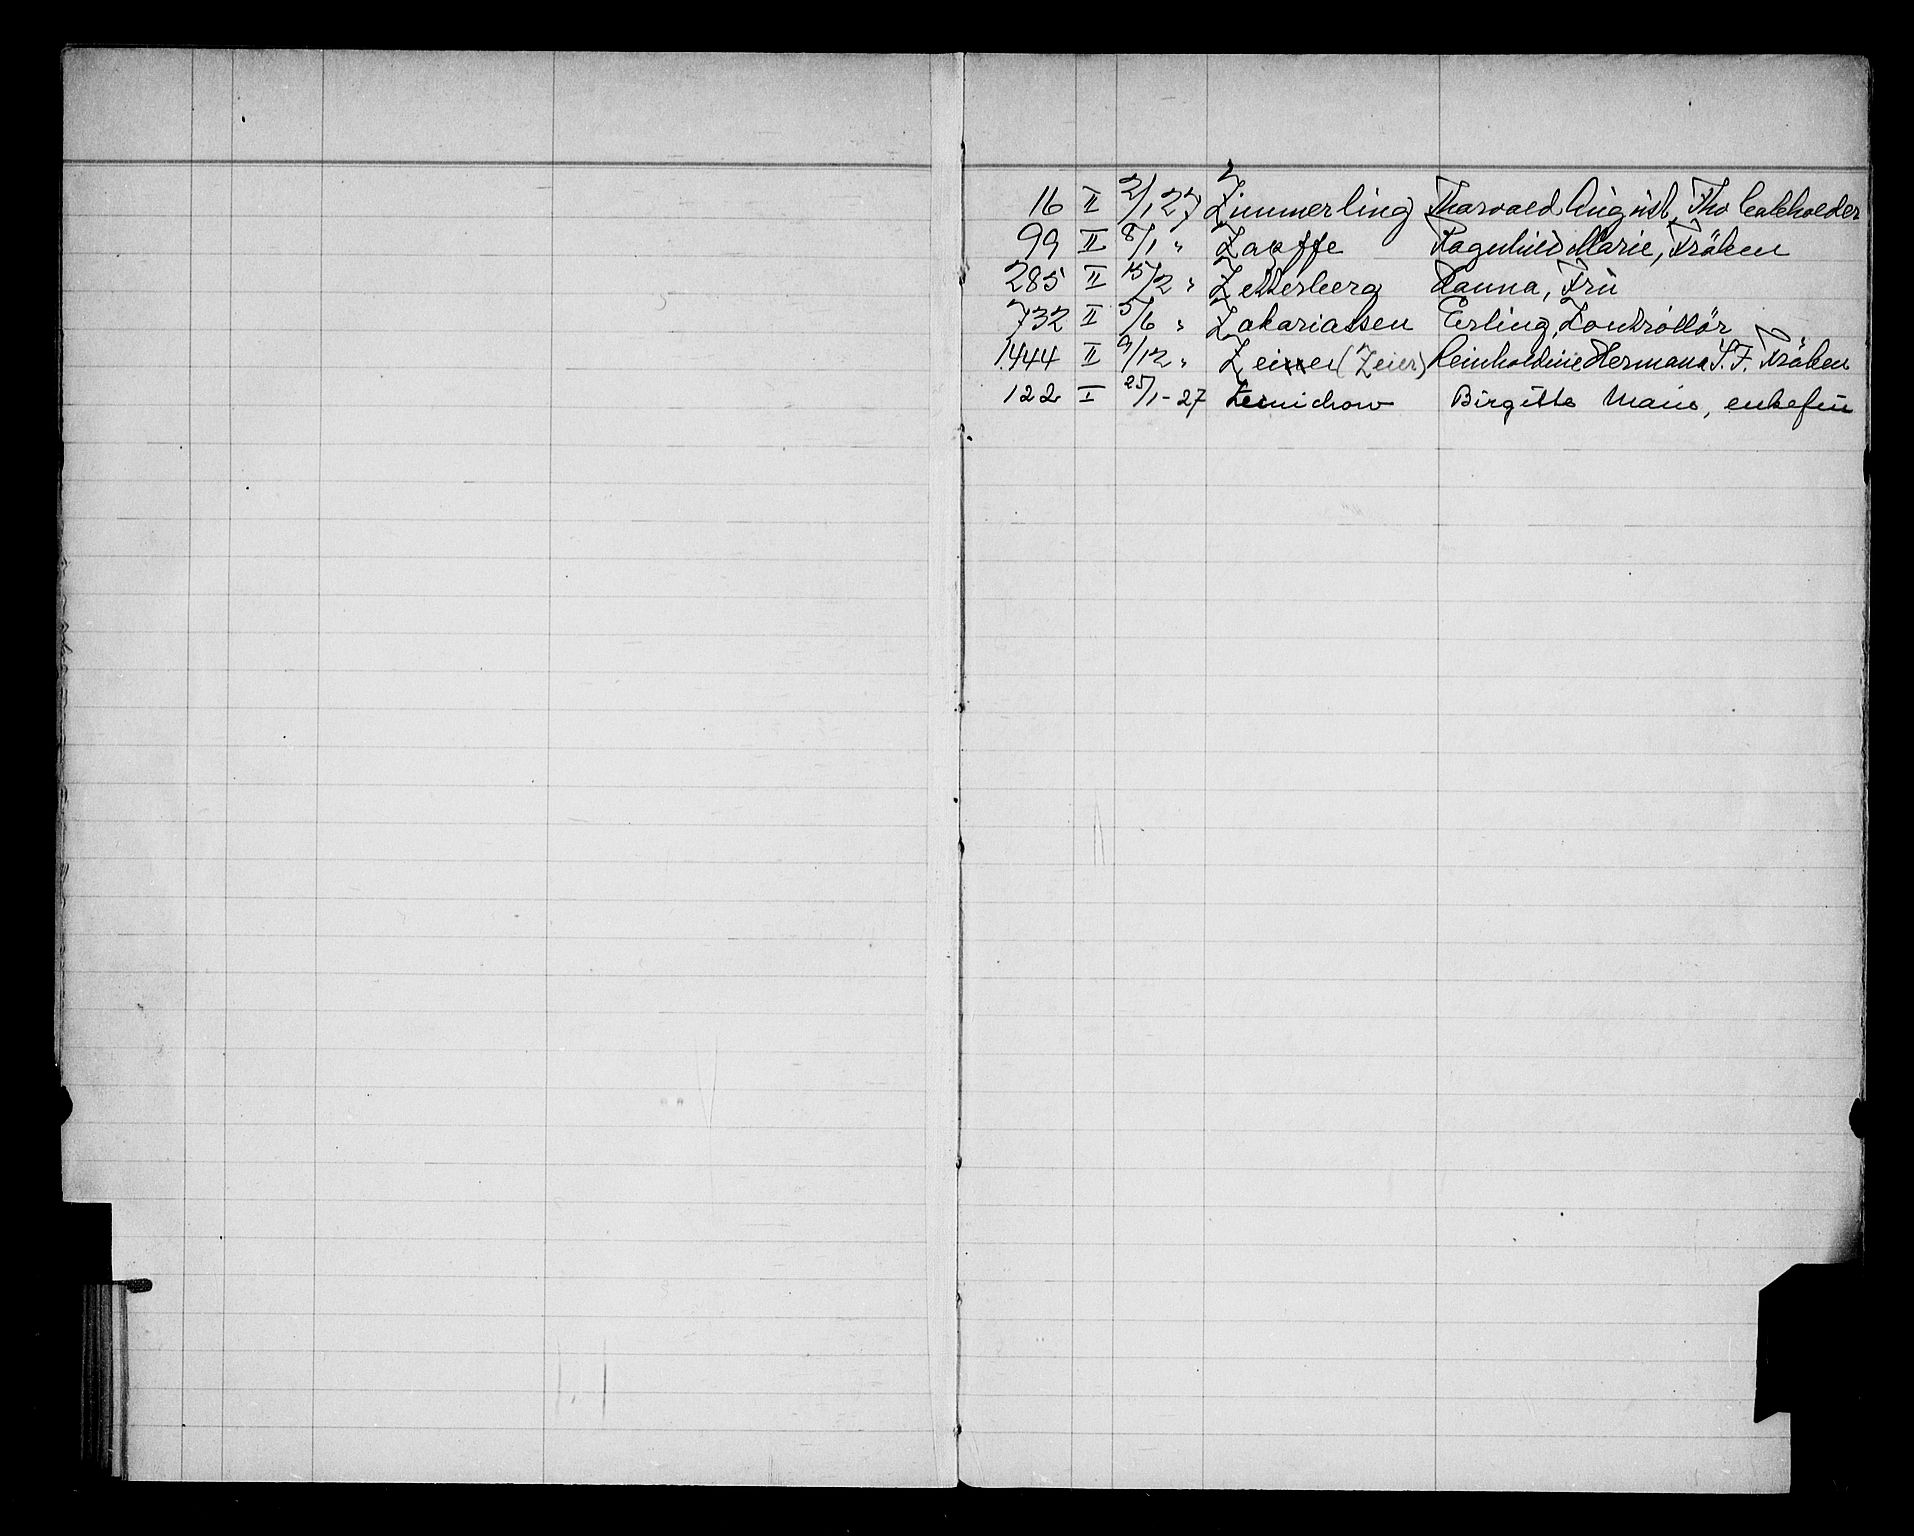 16 II 2/1 27 Zimmerling Thorvald August,
99 II 8/1 " Zapffe Ragnhild Marie, Fröken
285 II 15/2 " Zetterberg Hanna, Frü
732 II 5/6 " Zakariassen Erling, Kontrollör
1444 II 9/12 " (Zeier) Reinholdine Hermana S.F. Fröken
122 I 25/1-27 Birgitte Marie, enkefru